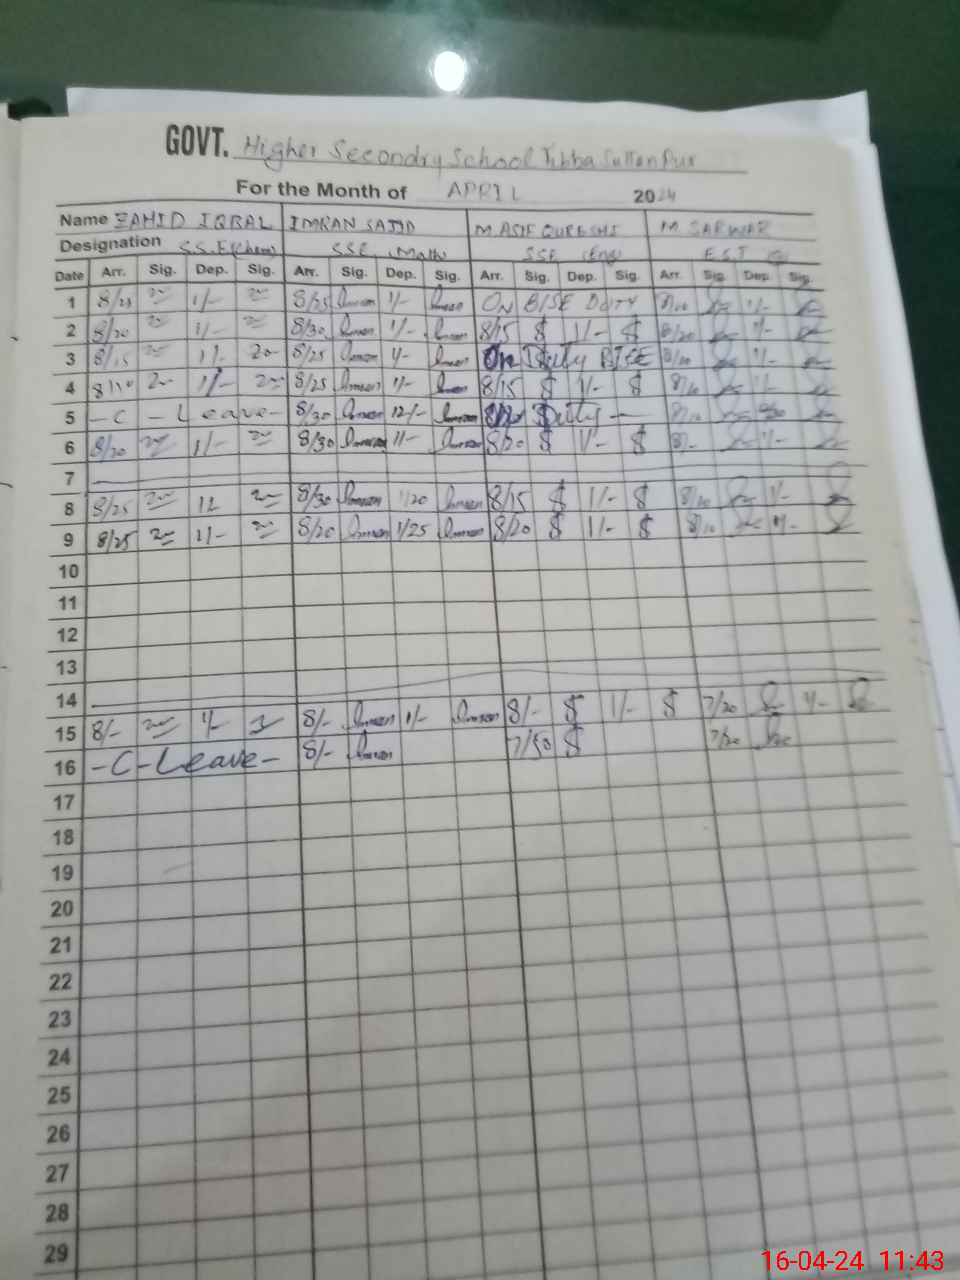 GOVT. Higher Secondry School Tibba Sultan Pur
For the Month of APRIL 2024
Name ZAHID IQBAL IMRAN SAJID M. ASIF QURESHI M. SARWAR
Designation S.S.E (Chem) SSE, Math SSE (Eng) E.S.T
Date Arr. Sig. Dep. Sig. Arr. Sig. Dep. Sig. Arr. Sig. Dep. Sig. Arr. Sig. Dep. Sig.
1 8/25 1/- 8/25 Imran 1/- Imran ON BISE DUTY 8/10 1/-
2 8/20 1/- 8/30 Imran 1/- Imran 8/15 $ 1/- $ 8/20 1/-
3 8/15 1/- 8/25 Imran 1/- Imran On Duty BISE 8/10 1/-
4 8/10 1/- 8/25 Imran 1/- Imran 8/15 $ 1/- $ 8/10 1/-
5 -C-Leave- 8/30 Imran 12/- Imran Duty 8/10
6 8/20 1/- 8/30 Imran 1/- Imran 8/20 $ 1/- $ 8/- 1/-
7
8 8/25 1/- 8/30 Imran 1/20 Imran 8/15 $ 1/- $ 8/10 1/-
9 8/25 1/- 8/20 Imran 1/25 Imran 8/20 $ 1/- $ 8/10 1/-
10
11
12
13
14
15 8/- 1/- 8/- Imran 1/- Imran 8/- $ 1/- $ 7/20 1/-
16 -C-Leave- 8/- Imran 7/50 $ 7/20
17
18
19
20
21
22
23
24
25
26
27
28
29
16-04-24 11:43